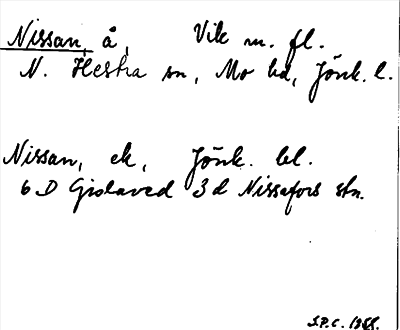 Nissan, å, Vik m. fl.
N. Hestra sn, Mo hd, Jönk. l.
Nissan, ek, Jönk. bl.
6 D Gislaved 3 d Nissafors stn.
S.P.C. 1958.